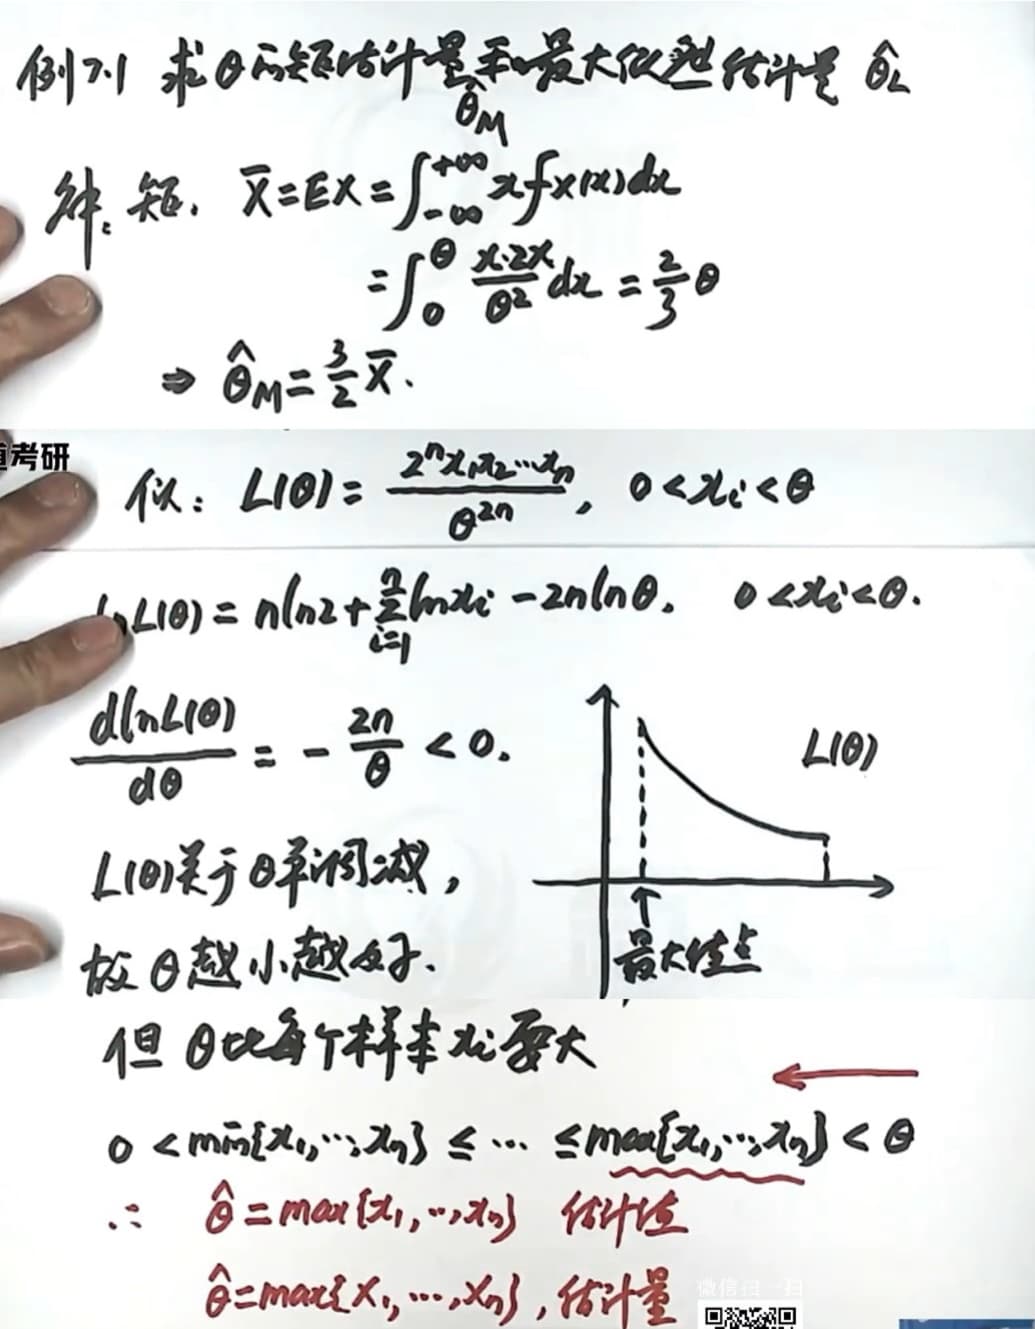 例7.1 求θ的矩估计量和最大似然估计量 θ̂L
θ̂M
解: 矩. X̄=EX=∫_{-∞}^{+∞} x fX(x)dx
=∫_0^θ (x·2x)/θ² dx = 2/3 θ
⇒ θ̂M = 3/2 X̄.
道考研
似: L(θ) = (2ⁿx₁x₂…xₙ)/θ²ⁿ, 0<xᵢ<θ
lnL(θ) = nln2+∑_{i=1}^{n} lnxᵢ −2nlnθ. 0<xᵢ<θ.
dlnL(θ)/dθ = − 2n/θ < 0.
L(θ)
L(θ)关于θ单调减,
最大值点
故θ越小越好.
但θ比每个样本xᵢ要大
0 < min{x₁,…,xₙ} ≤ … ≤ max{x₁,…,xₙ} < θ
∴ θ̂ = max{x₁,…,xₙ} 估计值
θ̂ = max{X₁,…,Xₙ}, 估计量
微信扫一扫